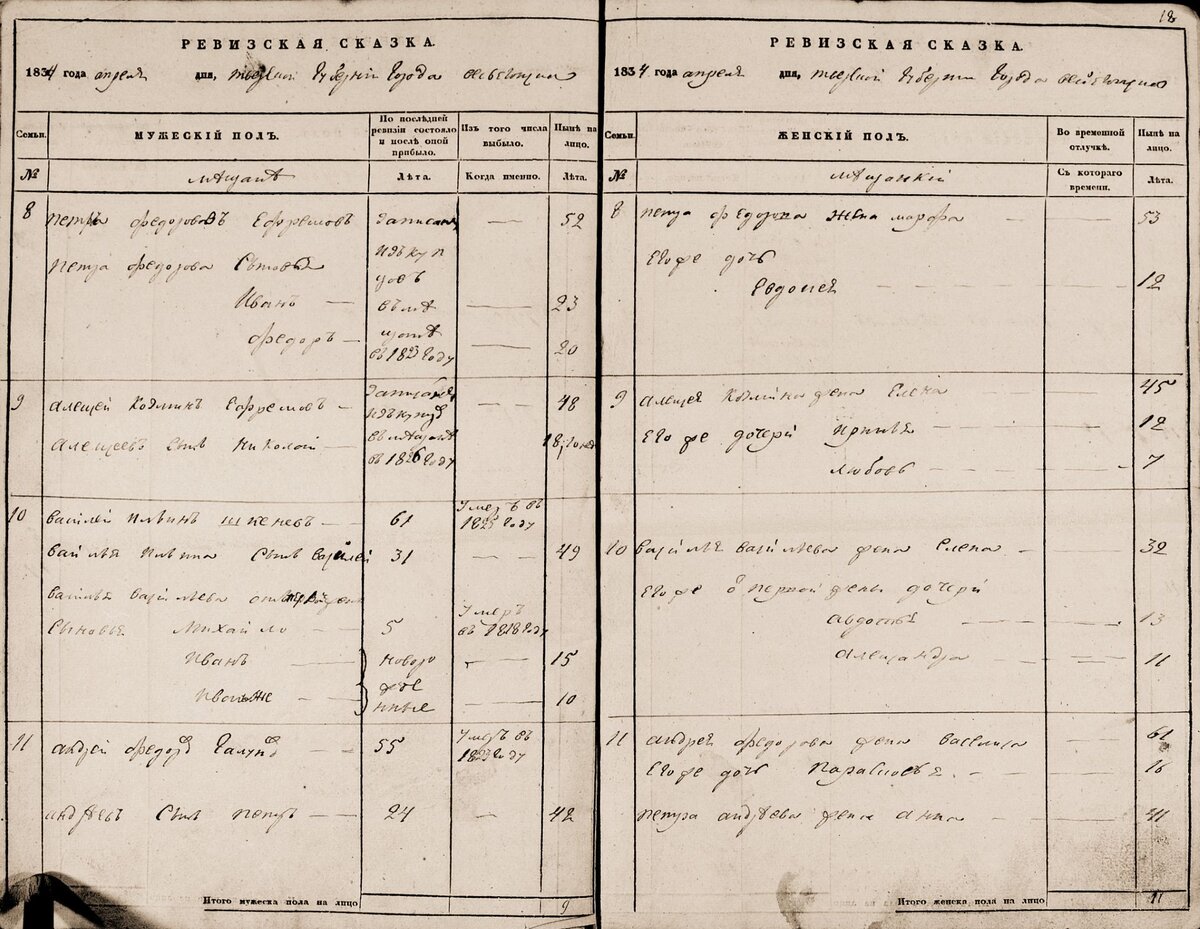 РЕВИЗСКАЯ СКАЗКА.
1834 года апреля дня, тверской губерніи города весьегонска
Семьи.
МУЖЕСКІЙ ПОЛЪ.
По послѣдней ревизіи состояло и послѣ оной прибыло.
Изъ того числа выбыло.
Нынѣ на лицо.
№
мѣщанѣ
Лѣта.
Когда именно.
Лѣта.
8 петръ федоровъ Ефремовъ Записаны 52
петра федорова Сыновья изъ куп
цовъ
Иванъ — въ мѣ — 23
федоръ — щанѣ — 20
въ 1823 году
9 алексей Козминъ Ефремовъ — изъ купцовъ — 48
алексеевъ Сынъ Николай — въ мѣщанѣ 18
въ 1826 году
10 василей Ильинъ — 61 Умеръ въ 1825 году
василья Ильина Сынъ василей 31 — 49
василья васильева
Сыновья Михайло — 5 Умеръ въ 1818 году
Иванъ — новоро — 15
Иванъ же жде — 10
нные
11 андрей федоровъ Галунов — 55 Умеръ въ 1823 году
андреевъ Сынъ петръ — 24 — 42
Итого мужеска пола на лицо 9
18
РЕВИЗСКАЯ СКАЗКА.
1834 года апреля дня, тверской губерніи города весьегонска
Семьи.
ЖЕНСКІЙ ПОЛЪ.
Во временной отлучкѣ.
Нынѣ на лицо.
№
мѣщанкий
Съ котораго времени.
Лѣта.
8 петра федорова жена марфа — 53
Его же дочь
Евдокея — 12
9 алексея Козмина жена Елена — 45
Его же дочери Иринья — 12
Любовь — 7
10 василья васильева жена Елена — 32
Его же о первой жены дочери
авдотья — 13
александра — 11
11 андрея федорова жена василиса — 61
Его же дочь Парасковья — 16
петра андреева жена анна — 41
Итого женска пола на лицо 11